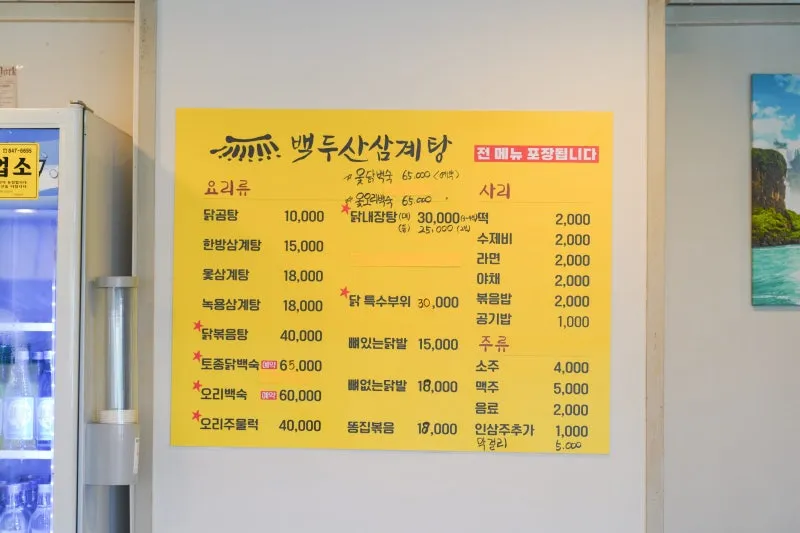 york
☎847-6695
업소
백두산삼계탕
전 메뉴 포장됩니다
옻닭백숙 65,000 (예약)
옻오리백숙 65,000
요리류
닭곰탕 10,000
한방삼계탕 15,000
옻삼계탕 18,000
녹용삼계탕 18,000
닭볶음탕 40,000
토종닭백숙 예약 65,000
오리백숙 예약 60,000
오리주물럭 40,000
닭내장탕 (대) 30,000
(중) 25,000
닭 특수부위 30,000
뼈있는닭발 15,000
뼈없는닭발 18,000
똥집볶음 18,000
사리
떡 2,000
수제비 2,000
라면 2,000
야채 2,000
볶음밥 2,000
공기밥 1,000
주류
소주 4,000
맥주 5,000
음료 2,000
인삼주추가 1,000
막걸리 5,000